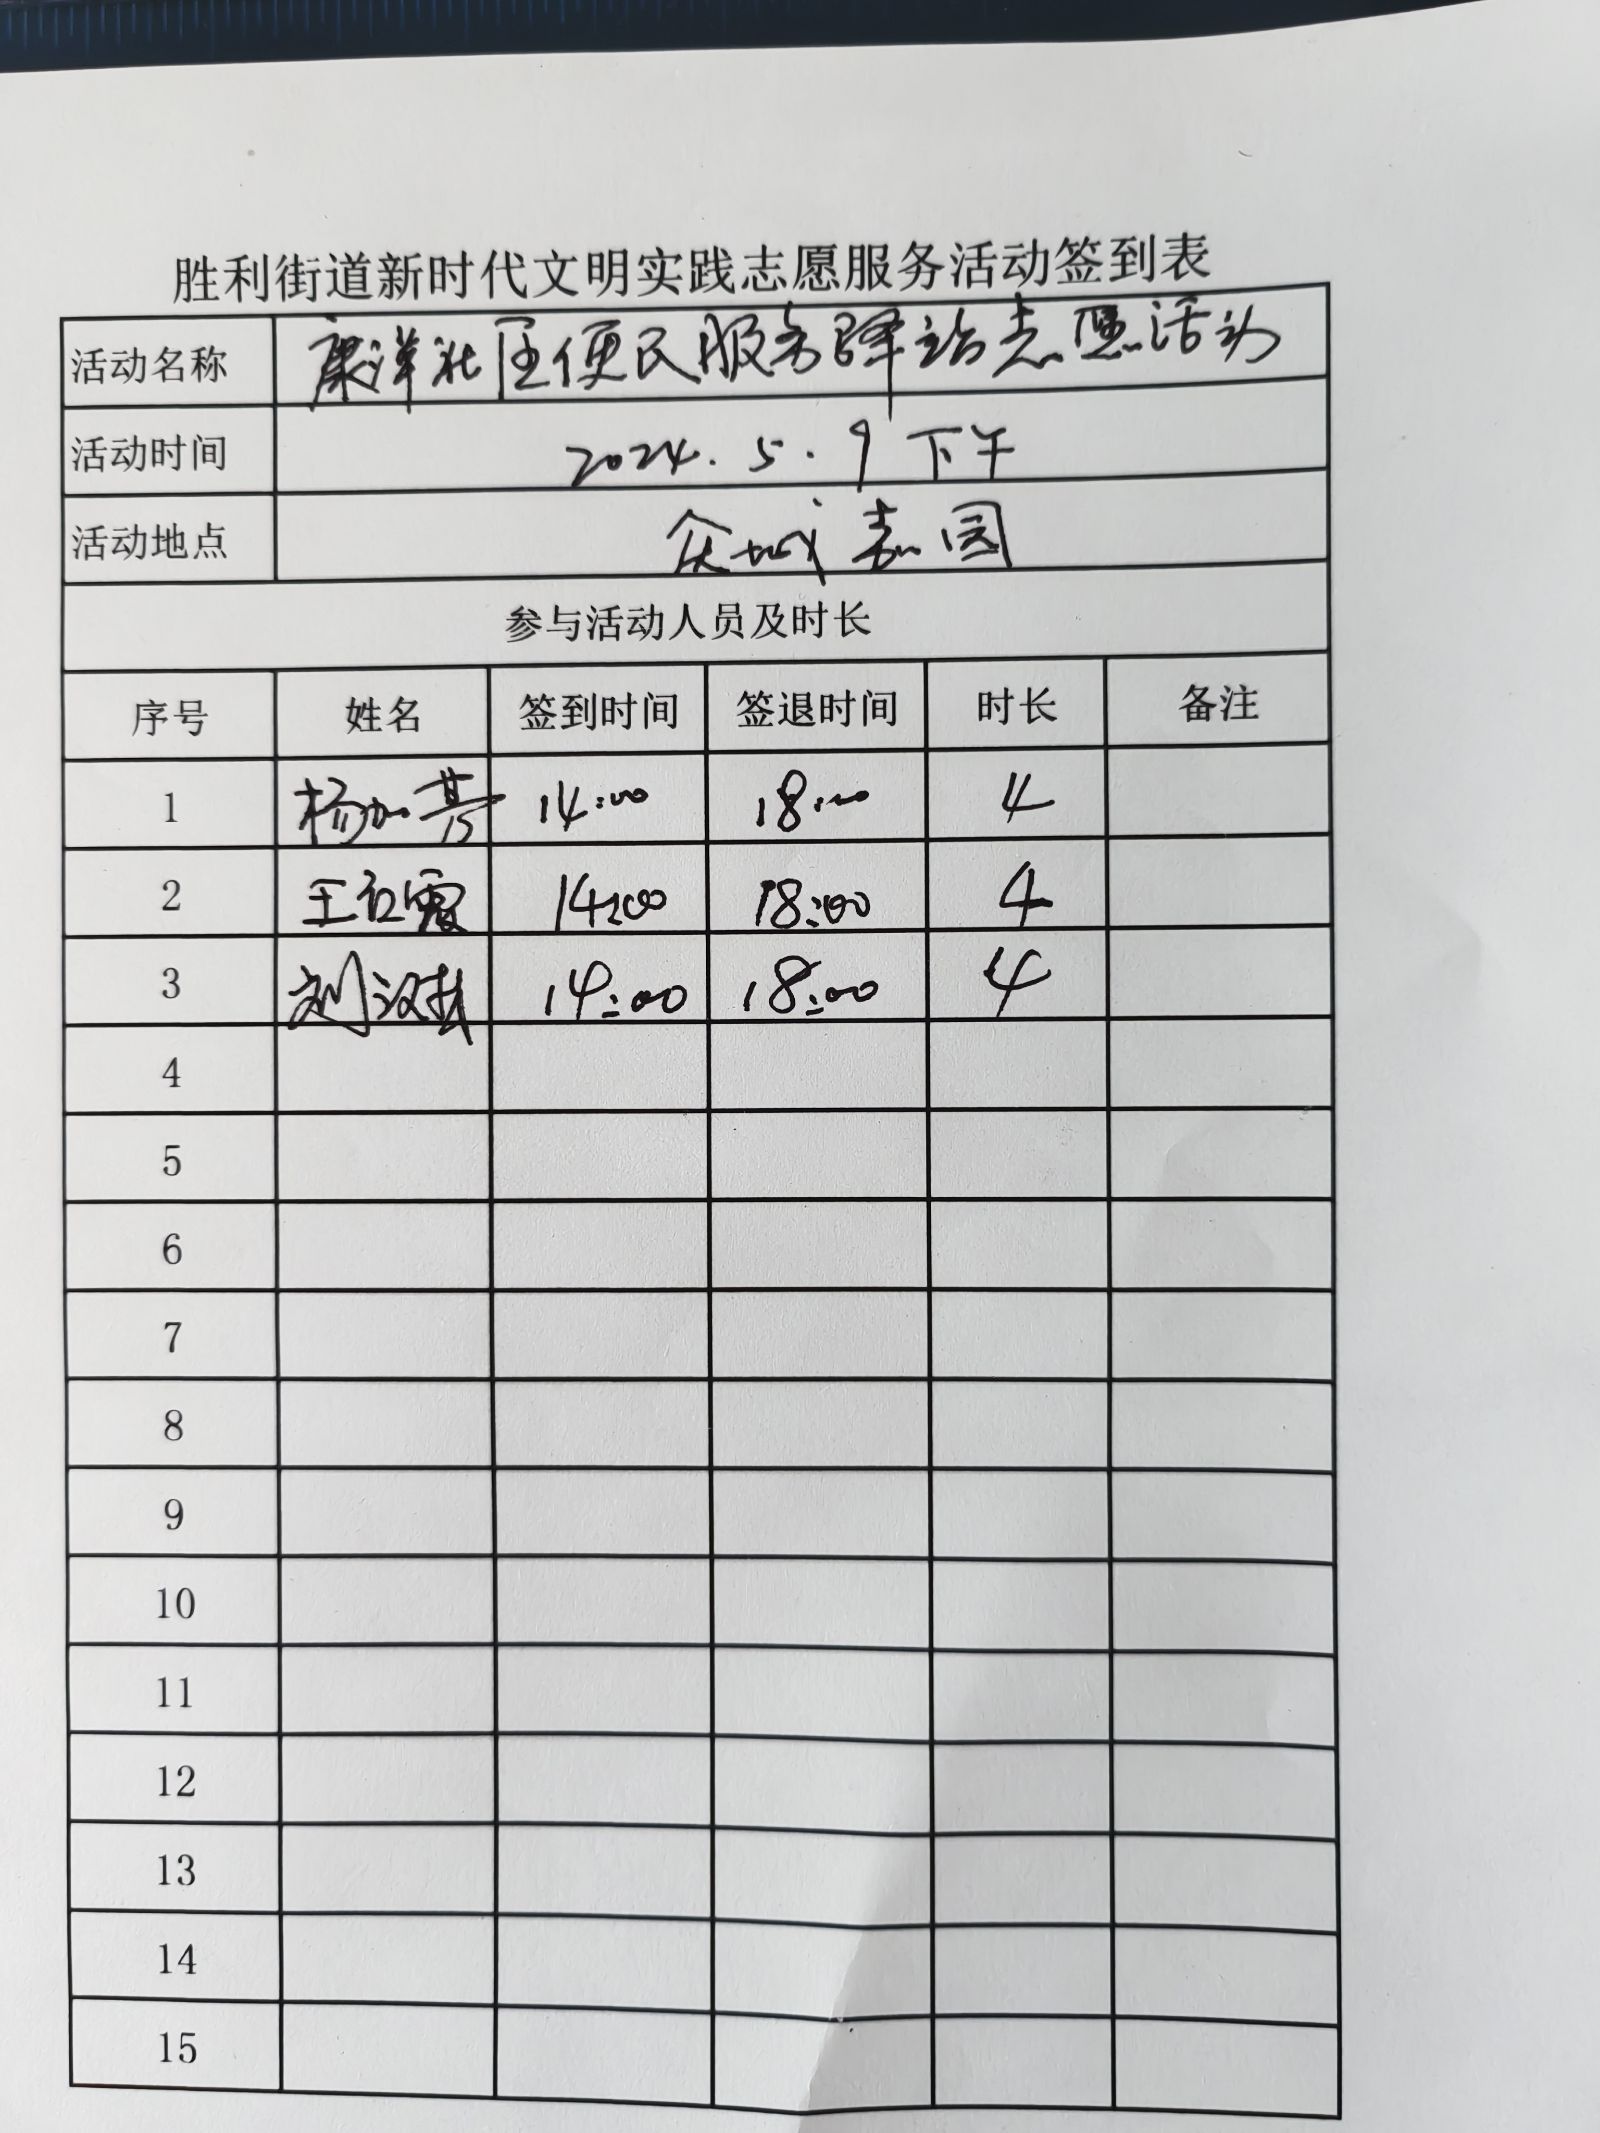 胜利街道新时代文明实践志愿服务活动签到表
活动名称 康洋社区便民服务驿站志愿活动
活动时间 2024.5.9下午
活动地点 众城嘉园
参与活动人员及时长
序号 姓名 签到时间 签退时间 时长 备注
1 杨加 14:00 18:00 4
2 王红霞 14:00 18:00 4
3 刘汉 14:00 18:00 4
4
5
6
7
8
9
10
11
12
13
14
15